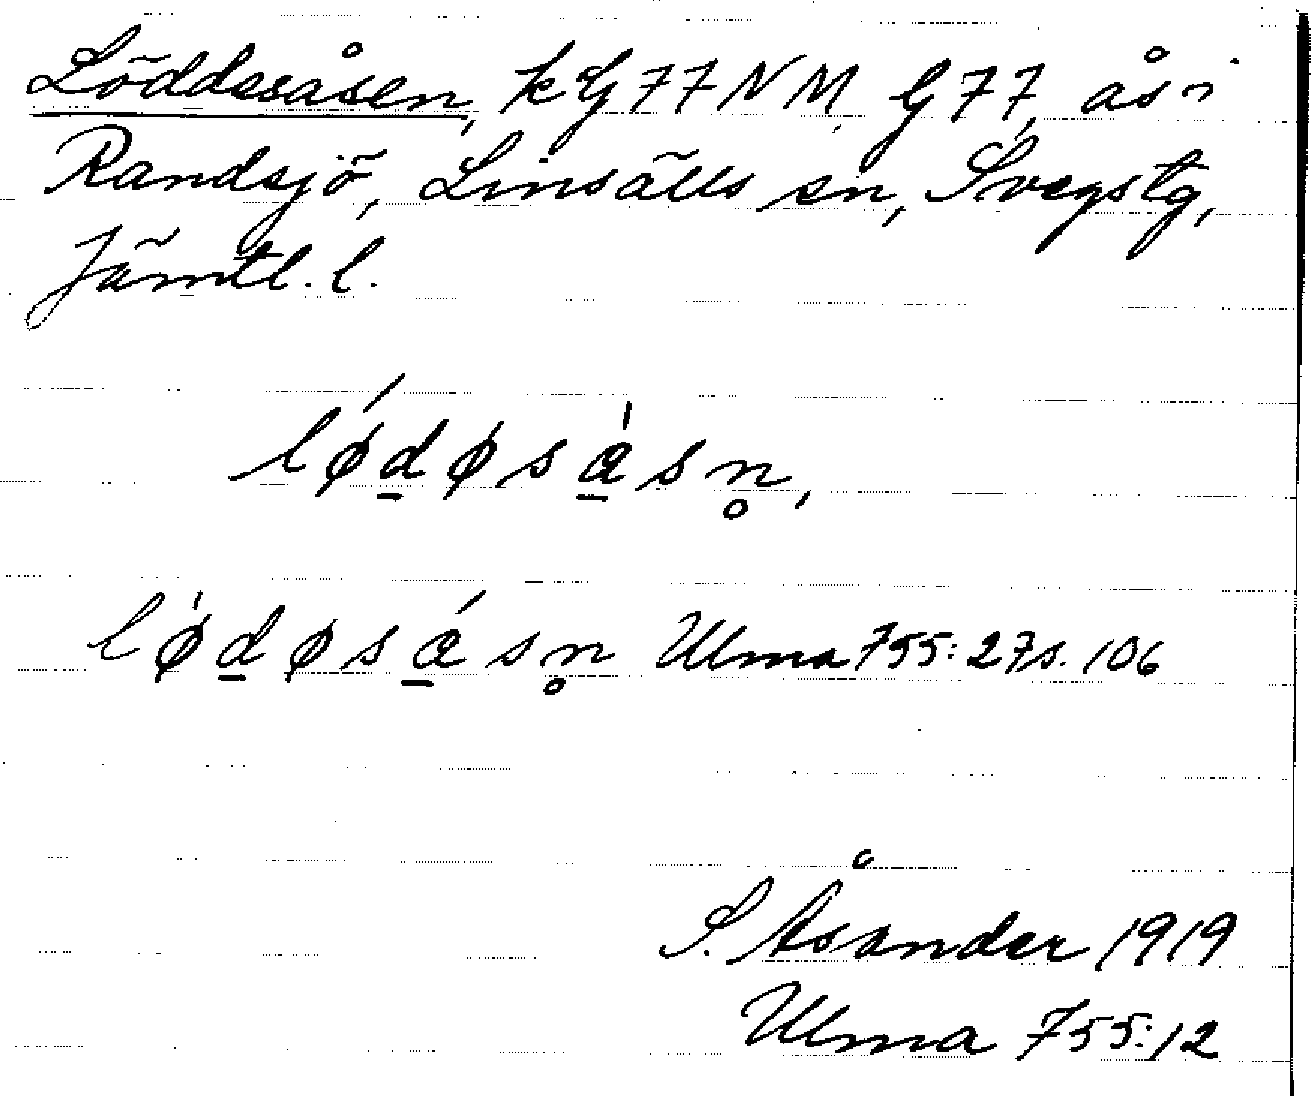 Löddesåsen, kG77NM, G77, ås i
Randsjö, Linsälls sn, Svegs tg,
Jämtl. l.
lǿd̲øsa̲̍sn̥,
lø̍d̲øsá̲sn̥ Ulma 755:27 s. 106
S. Åsander 1919
Ulma 755:12